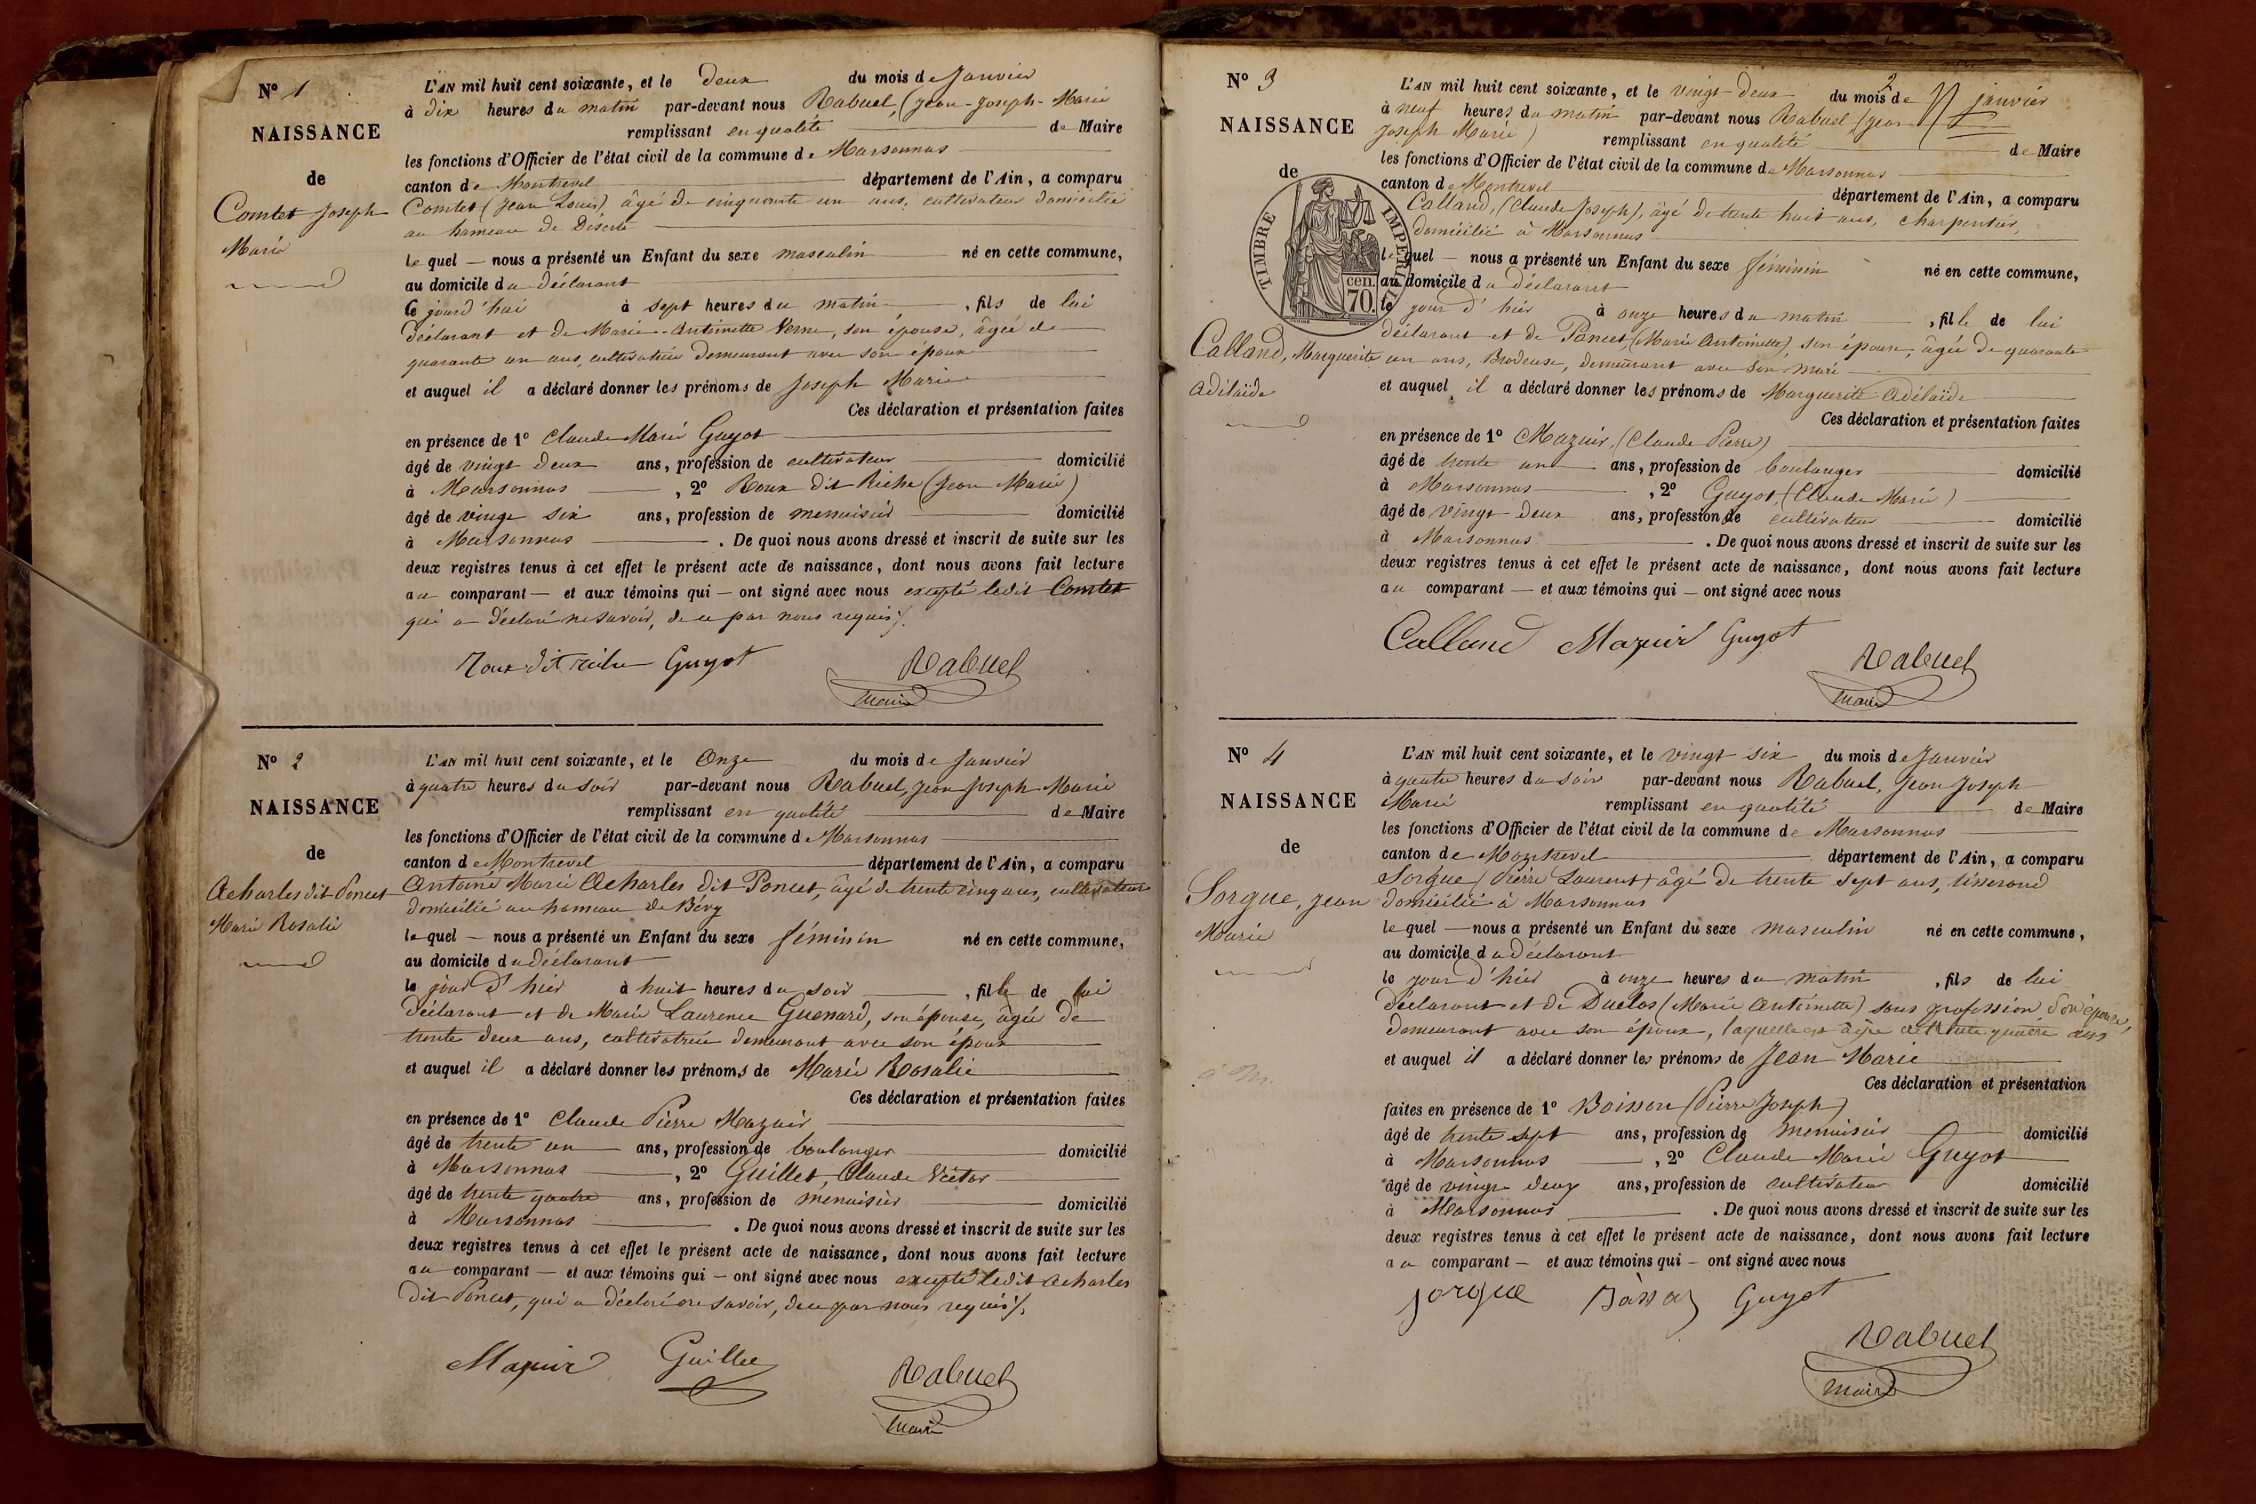 Nº 1
NAISSANCE
de
Comtet Joseph
Marie
L'AN mil huit cent soixante, et le deux du mois de Janvier
à dix heures du matin par-devant nous Rabuel, (Jean-Joseph-Marie
remplissant en qualité de Maire
les fonctions d'Officier de l'état civil de la commune de Marsonnas
canton de Montrevel département de l'Ain, a comparu
Comtet (Jean Louis) âgé de cinquante un ans, cultivateur domicilié
au hameau de Déserte
lequel — nous a présenté un Enfant du sexe masculin né en cette commune,
au domicile du déclarant
le jourd'hui à sept heures du matin, fils de lui
déclarant et de Marie-Antoinette Verne, son épouse, âgée de
quarante un ans, cultivatrice demeurant avec son époux
et auquel il a déclaré donner les prénoms de Joseph Marie
Ces déclaration et présentation faites
en présence de 1º Claude Marie Guyot
âgé de vingt deux ans, profession de cultivateur domicilié
à Marsonnas, 2º Roux dit Riche (Jean Marie)
âgé de vingt six ans, profession de menuisier domicilié
à Marsonnas. De quoi nous avons dressé et inscrit de suite sur les
deux registres tenus à cet effet le présent acte de naissance, dont nous avons fait lecture
au comparant — et aux témoins qui — ont signé avec nous excepté ledit Comtet
qui a déclaré ne savoir, de ce par nous requis /.
Roux dit riche Guyot Rabuel
maire
Nº 2
NAISSANCE
de
Acharles dit Poncet
Marie Rosalie
L'AN mil huit cent soixante, et le Onze du mois de Janvier
à quatre heures du soir par-devant nous Rabuel, Jean Joseph Marie
remplissant en qualité de Maire
les fonctions d'Officier de l'état civil de la commune de Marsonnas
canton de Montrevel département de l'Ain, a comparu
Antoine Marie Acharles dit Poncet, âgé de trente cinq ans, cultivateur
domicilié au hameau de Bévy
lequel — nous a présenté un Enfant du sexe féminin né en cette commune,
au domicile du déclarant
le jour d'hier à huit heures du soir, fille de lui
déclarant et de Marie Laurence Guenard, son épouse, âgée de
trente deux ans, cultivatrice demeurant avec son époux
et auquel il a déclaré donner les prénoms de Marie Rosalie
Ces déclaration et présentation faites
en présence de 1º Claude Pierre Mazuir
âgé de trente un ans, profession de boulanger domicilié
à Marsonnas, 2º Guillet, Claude Victor
âgé de trente quatre ans, profession de menuisier domicilié
à Marsonnas. De quoi nous avons dressé et inscrit de suite sur les
deux registres tenus à cet effet le présent acte de naissance, dont nous avons fait lecture
au comparant — et aux témoins qui — ont signé avec nous excepté ledit Acharles
dit Poncet, qui a déclaré ne savoir, de ce par nous requis /.
Mazuir Guillet Rabuel
maire
2
Nº 3
NAISSANCE
de
TIMBRE IMPERIAL
70 cen.
Calland, Marguerite
Adélaïde
L'AN mil huit cent soixante, et le vingt deux du mois de janvier
à neuf heures du matin par-devant nous Rabuel (Jean
Joseph Marie) remplissant en qualité de Maire
les fonctions d'Officier de l'état civil de la commune de Marsonnas
canton de Montrevel département de l'Ain, a comparu
Calland, (Claude Joseph), âgé de trente huit ans, charpentier,
domicilié à Marsonnas
lequel — nous a présenté un Enfant du sexe féminin né en cette commune,
au domicile du déclarant
le jour d'hier à onze heures du matin, fille de lui
déclarant et de Poncet (Marie Antoinette), son épouse, âgée de quarante
un ans, Brodeuse, demeurant avec son mari
et auquel il a déclaré donner les prénoms de Marguerite Adélaïde
Ces déclaration et présentation faites
en présence de 1º Mazuir, (Claude Pierre)
âgé de trente un ans, profession de boulanger domicilié
à Marsonnas, 2º Guyot (Claude Marie)
âgé de vingt deux ans, profession de cultivateur domicilié
à Marsonnas. De quoi nous avons dressé et inscrit de suite sur les
deux registres tenus à cet effet le présent acte de naissance, dont nous avons fait lecture
au comparant — et aux témoins qui — ont signé avec nous
Calland Mazuir Guyot Rabuel
maire
Nº 4
NAISSANCE
de
Sorgue, Jean
Marie
L'AN mil huit cent soixante, et le vingt six du mois de Janvier
à quatre heures du soir par-devant nous Rabuel, Jean Joseph
Marie remplissant en qualité de Maire
les fonctions d'Officier de l'état civil de la commune de Marsonnas
canton de Montrevel département de l'Ain, a comparu
Sorgue (Pierre Laurent) âgé de trente sept ans, tisserand
domicilié à Marsonnas
lequel — nous a présenté un Enfant du sexe masculin né en cette commune,
au domicile du déclarant
le jour d'hier à onze heures du matin, fils de lui
déclarant et de Duclos (Marie Antoinette) sans profession, son épouse,
demeurant avec son époux, laquelle est âgée de trente quatre ans
et auquel il a déclaré donner les prénoms de Jean Marie
Ces déclaration et présentation
faites en présence de 1º Boisson (Pierre Joseph)
âgé de trente sept ans, profession de menuisier domicilié
à Marsonnas, 2º Claude Marie Guyot
âgé de vingt deux ans, profession de cultivateur domicilié
à Marsonnas. De quoi nous avons dressé et inscrit de suite sur les
deux registres tenus à cet effet le présent acte de naissance, dont nous avons fait lecture
au comparant — et aux témoins qui — ont signé avec nous
Sorgue Guyot
Rabuel
maire